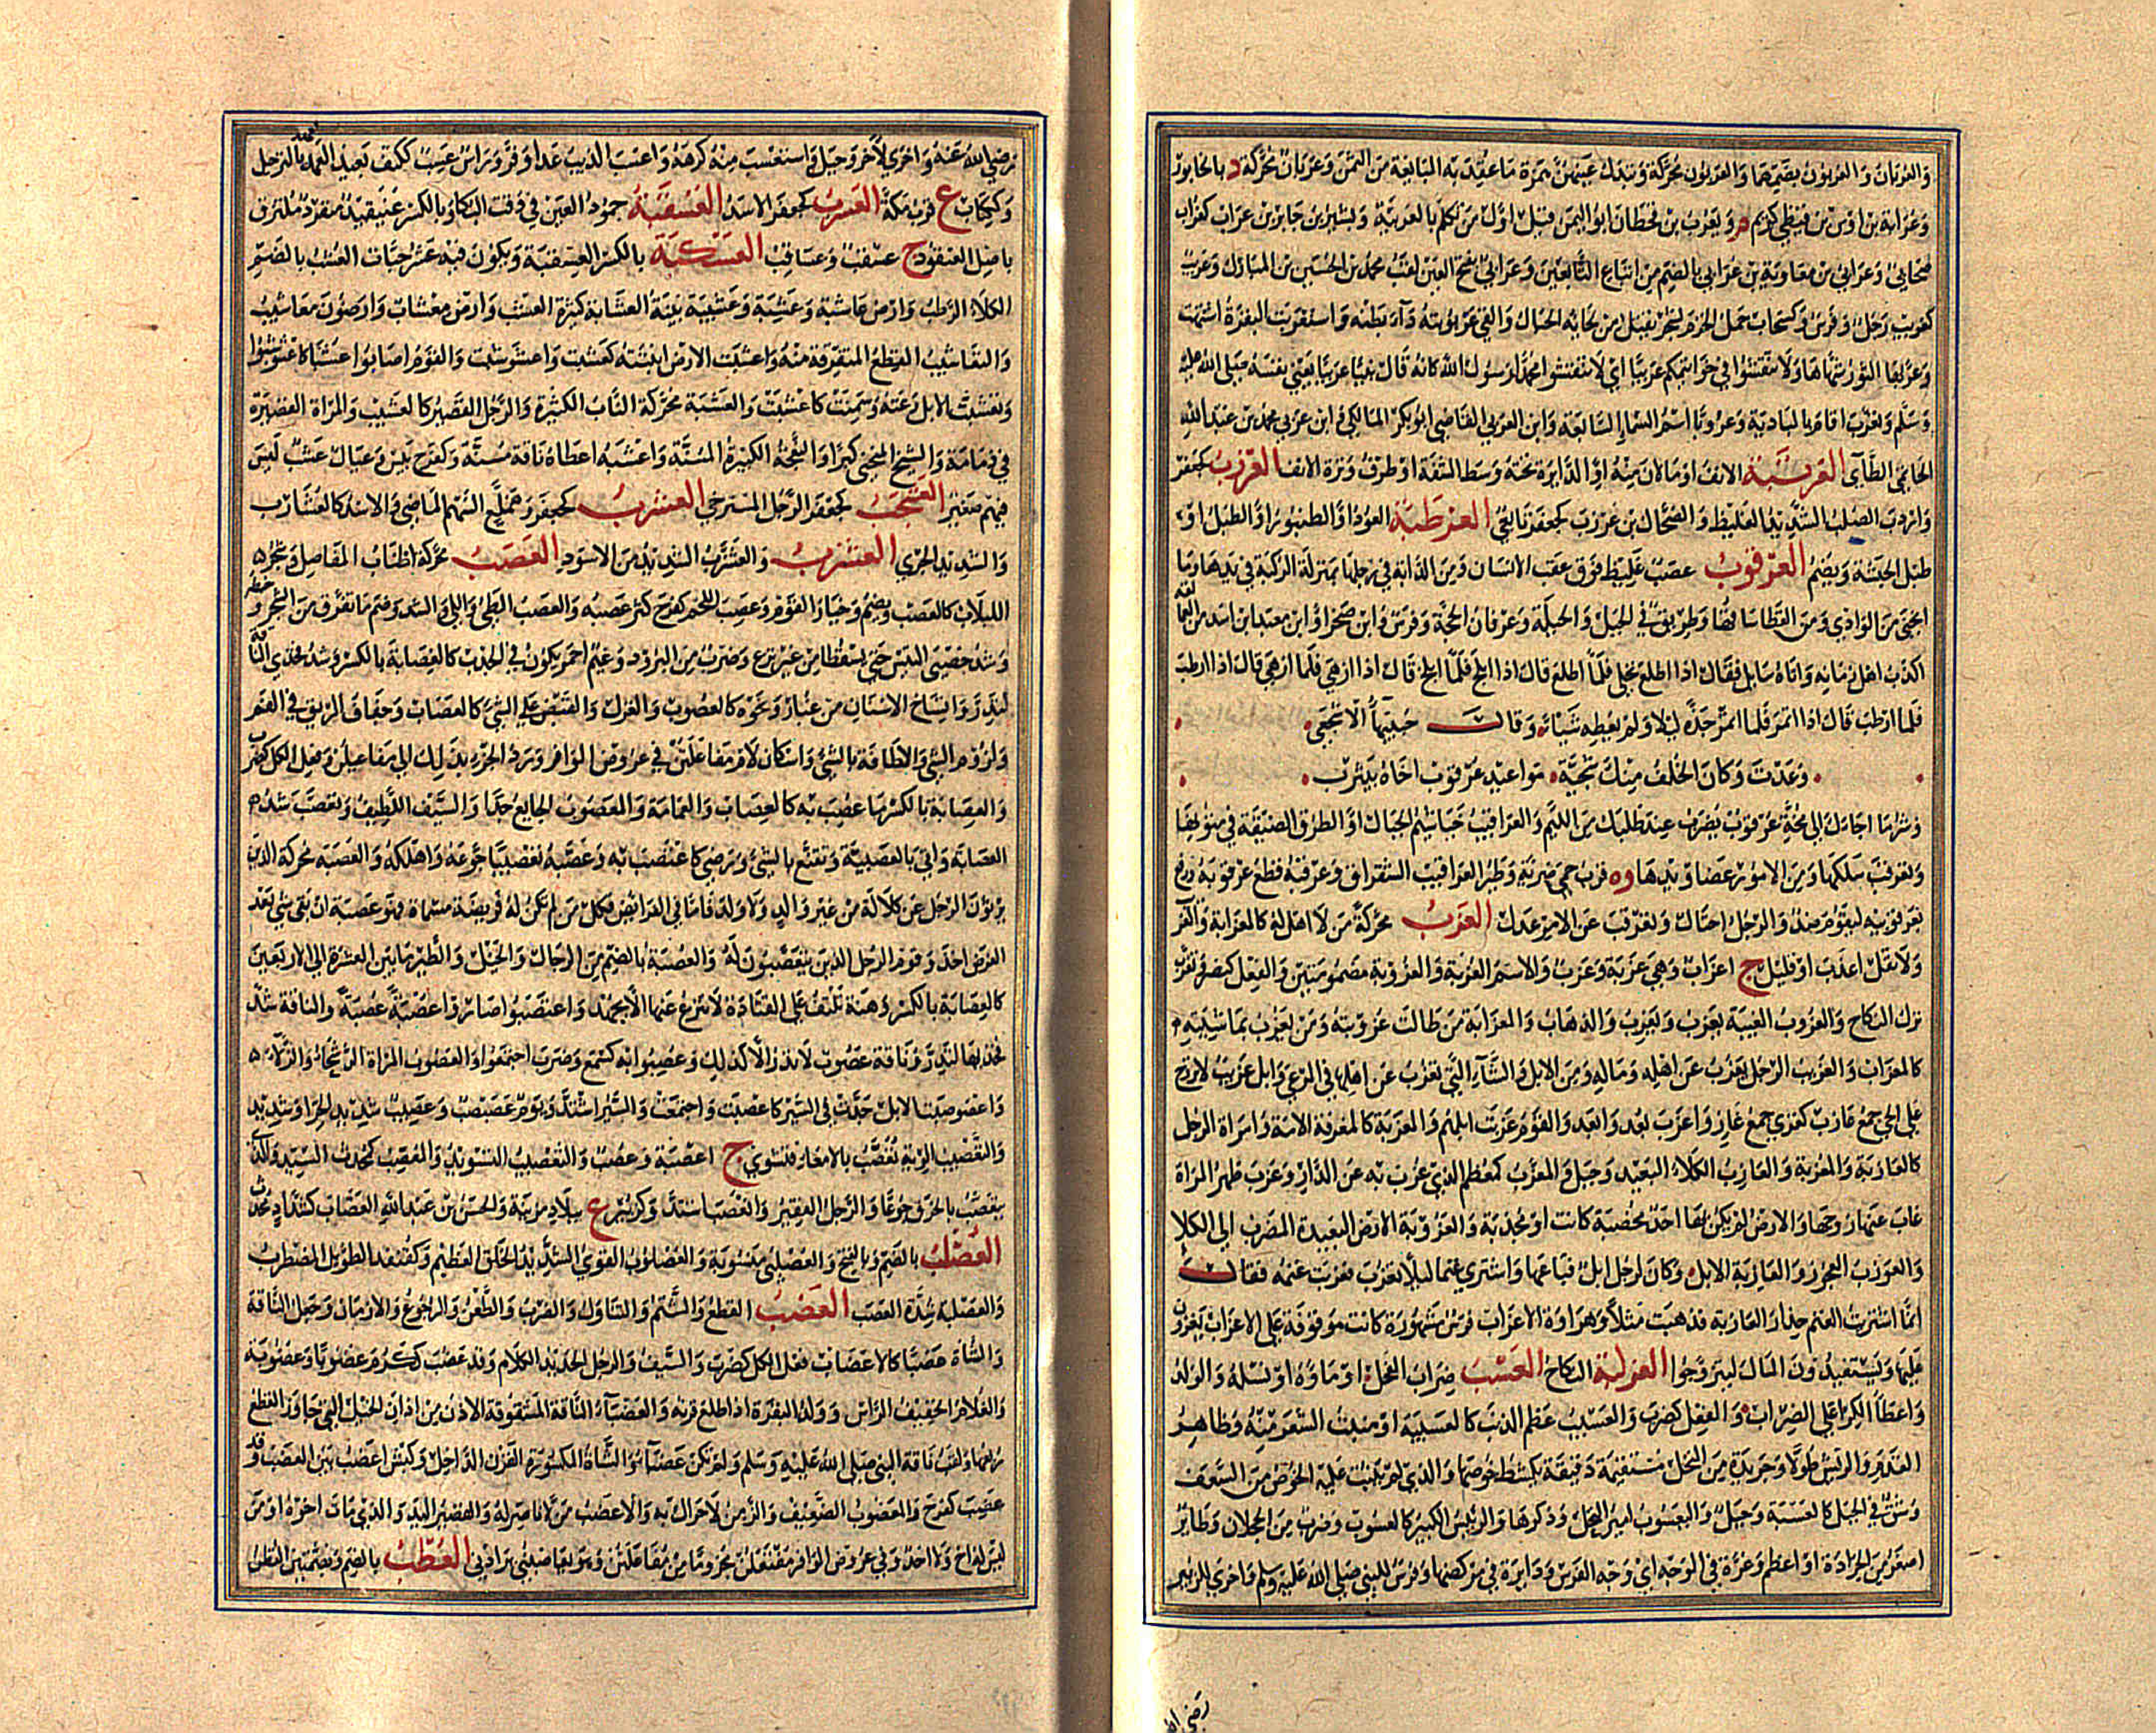 والعربان والعربون بضمهما والعربون محركة وتبدل عينهن همزة ما عقد به المبايعة من الثمن وعربان محركة د بالخابور
وعرابة بن اوس بن قيظي كريم م ويعرب بن قحطان ابو اليمن قيل اول من تكلم بالعربية وبشير بن جابر بن عراب كغراب
صحابي وعرابي بن معاوية بن عرابي بالضم من اتباع التابعين وعرابي بفتح العين لقب محمد بن الحسين بن المبارك وعريب
كغريب رجل وفرس وكسحاب حمل الخزم لشجر يفتل من لحائه الحبال والقى عربونه ذا بطنه واستعربت البقرة اشتهت
وعربها الثور شهاها ولا تنقشوا في خواتمكم عربيا اي لا تنقشوا محمد رسول الله كانه قال نبيا عربيا يعني نفسه صلى الله عليه
وسلم وتعرب اقام بالبادية وعروبا اسم السماء السابعة وابن العربي القاضي ابو بكر المالكي وابن عربي محمد بن عبد الله
الحاتمي الطائي العرتبة الانف او ما لان منه او الدائرة تحته وسط الشفة او طرف وترة الانف العرزب كجعفر
واردب الصلب الشديد الغليظ والضحاك بن عرزب كجعفر تابعي العرطبة العود او الطنبور او الطبل او
طبل الحبشة ويضم العرقوب عصب غليظ فوق عقب الانسان ومن الدابة في رجلها بمنزلة الركبة في يدها وما
انحنى من الوادي ومن القطا ساقها وطريق في الجبل والحيلة وعرفان الحجة وفرس وابن صخر او ابن معبد ابن اسد من العمالقة
اكذب اهل زمانه واتاه سايل فقال اذا اطلع نخلي فلما اطلع قال اذا ابلح فلما ابلح قال اذا ازهى فلما ازهى قال اذا ارطب
فلما ارطب قال اذا اتمر فلما اتمر جذه ليلا ولم يعطه شيئا وقال جبيهاء الاشجعي
وعدت وكان الخلف منك سجية مواعيد عرقوب اخاه بيثرب
وشر ما اجاءك الى مخة عرقوب يضرب عند طلبك من اللئيم والعراقيب خياشيم الجبال او الطرق الضيقة في متونها
وتعرقب سلكها ومن الامور عصاويدها و ة قرب حمى ضرية وطير العراقيب الشقراق وعرقبه قطع عرقوبه ورفع
بعرقوبيه ليقوم ضد والرجل احتال وتعرقب عن الامر عدل العزب محركة من لا اهل له كالعزابة والعزيب
ولا تقل اعزب او قليل ج اعزاب وهي عزبة وعزب والاسم العزبة والعزوبة مضمومتين والفعل كنصر وتعزب
ترك النكاح والعزوب الغيبة يعزب ويعزب والذهاب والمعزابة من طالت عزوبته ومن يعزب بماشيته
كالمعزاب والعزيب الرجل يعزب عن اهله وماله ومن الابل والشاء التي تعزب عن اهلها في المرعى وابل عزيب لا تروح
على الحي جمع عازب كغزي جمع غاز واعزب بعد وابعد والقوم عزبت ابلهم والمعزبة كالمغرفة الامة وامراة الرجل
كالعازبة والمعزبة والعازب الكلاء البعيد وجبل والمعزب كمعظم الذي عزب به عن الدار وعزب طهر المراة
غاب عنها زوجها والارض لم يكن بها احد مخصبة كانت او مجدبة والعزوبة الارض البعيدة المضرب الى الكلا
والعوزب العجوز والعازبة الابل وكان لرجل ابل فباعها واشترى غنما ليلا تعزب فعزبت غنمه فقال
انما اشتريت الغنم حذار العازبة فذهبت مثلا وهراوة الاعزاب فرس مشهورة كانت موقوفة على الاعزاب يغزون
عليها ويستفيدون المال ليتزوجوا العزلبة النكاح العسب ضراب الفحل او ماؤه او نسله والولد
واعطاء الكرا على الضراب والفعل كضرب والعسيب عظم الذنب كالعسيبة او منبت الشعر منه وظاهر
القدم والريش طولا وجريدة من النخل مستقيمة دقيقة يكشط خوصها والذي لم ينبت عليه الخوص من السعف
وشق في الجبل كالعسبة وجبل واليعسوب امير النحل وذكرها والرئيس الكبير كالعسوب وضرب من الحجلان وطائر
اصغر من الجرادة او اعظم وغرة في الوجه اي وجه الفرس ودايرة في مركضها وفرس للنبي صلى الله عليه وسلم واخرى للزبير
رضي الله
رضي الله عنه واخرى لآخر وجبل واستعسب منه كرهه واعسب الذيب عدا وفر وراس عسب ككتف بعيد العهد بالترجيل
وككتاب ع قرب مكة العسرب كجعفر الاسد العسقبة جمود العين في وقت البكاء وبالكسر عنيقيد منفرد ملتزق
باصل العنقود ج عسقب وعساقب العسكبة بالكسر العسقبة ويكون فيه عشر حبات العشب بالضم
الكلاء الرطب وارض عاشبة وعشبة وعشيبة بينة العشابة كثيرة العشب وارض معشاب وارضون معاشيب
والتعاشيب القطع المتفرقة منه واعشبت الارض انبتته كعشبت واعشوشبت والقوم اصابوا عشبا كاعشوشبوا
وتعشبت الابل رعته وسمنت كاعشبت والعشبة محركة الناب الكبيرة والرجل القصير كالعشيب والمراة القصيرة
في دمامة والشيخ المنحني كبرا والنعجة الكبيرة المسنة واعشبه اعطاه ناقة مسنة وكفرح يبس وعيال عشب ليس
فيهم صغير العشجب كجعفر الرجل المسترخي العشرب كجعفر وعملس السهم الماضي والاسد كالعشارب
والشديد الجري العشزب والعشزب الشديد من الاسود العصب محركة اطناب المفاصل وشجر
اللبلاب كالعصب ويضم وخيار القوم وعصب اللحم كفرح كثر عصبه والعصب الطي واللي والشد وضم ما تفرق من الشجر وخبطه
وشد خصيي التيس حتى يسقطا من غير نزع وضرب من البرود وغيم احمر يكون في الجدب كالعصابة بالكسر وشد فخذي الناقة
لتدر واتساخ الاسنان من غبار ونحوه كالعصوب والغزل والقبض على الشيء كالعصاب وجفاف الريق في الفم
ولزوم الشيء والاطافة بالشيء واسكان لام مفاعلتن في عروض الوافر ورد الجزء بذلك الى مفاعيلن وفعل الكل كضرب
والعصابة بالكسر ما عصب به كالعصاب والعمامة والمعصوب الجايع جدا والسيف اللطيف وتعصب شد
العصابة واتى بالعصبية وتقنع بالشيء ورضي كاعتصب به وعصبه تعصيبا جوعه واهلكه والعصبة محركة الذين
يرثون الرجل عن كلالة من غير والد ولا ولد فاما في الفرائض فكل من لم تكن له فريضة مسماة فهو عصبة ان بقي شيء بعد
الفرض اخذ وقوم الرجل الذين يتعصبون له والعصبة بالضم من الرجال والخيل والطير ما بين العشرة الى الاربعين
كالعصابة بالكسر وهنة تلتف على القتادة لا تنزع عنها الا بجهد واعتصبوا صاروا عصبة عصبة والناقة شد
فخذيها لتدر وناقة عصوب لا تدر الا كذلك وعصبوا به كسمع وضرب اجتمعوا والعصوب المراة الرسحاء والزلاء
واعصوصبت الابل جدت في السير كاعصبت واجتمعت والشر اشتد ويوم عصبصب وعصيب شديد الحر او شديد
والعصيب الرئة تعصب بالامعاء فتشوى ج اعصبة وعصب والتعصيب التسويد والمعصب كمحدث السيد والذي
يتعصب بالخرق جوعا والرجل الفقير وانعصب اشتد وكزبير ع ببلاد مزينة والحسن بن عبد الله العصاب كشداد محدث
العصلب بالضم وبالفتح والعصلبي منسوبة والعصلوب القوي الشديد الخلق العظيم وكقنفذ الطويل المضطرب
والعصلبة شدة العصب العضب القطع والشتم والتناول والضرب والطعن والرجوع والازمان وجعل الناقة
والشاة عضبا كالاعضاب فعل الكل كضرب والسيف والرجل الحديد الكلام وقد عضب ككرم عضوبا وعضوبة
والغلام الخفيف الراس وولد البقرة اذا طلع قرنه والعضباء الناقة المشقوقة الاذن ومن اذان الخيل التي جاوز القطع
ربعها ولقب ناقة النبي صلى الله عليه وسلم ولم تكن عضباء والشاة المكسورة القرن الداخل وكبش اعضب بين العضب وقد
عضب كفرح والمعضوب الضعيف والزمن لا حراك به والاعضب من لا ناصر له والقصير اليد والذي مات اخوه او من
ليس له اخ ولا احد وفي عروض الوافر مفتعلن مخروما من مفاعلتن وهو يعاضبني يرادني العطب بالضم وبضمتين القطن